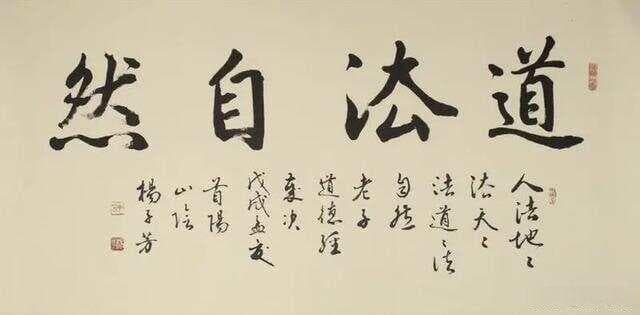 道法自然
人法地〻
法天〻
法道〻法
自然
老子
道德經
戊戌孟夏
首陽
山陰
楊子芳